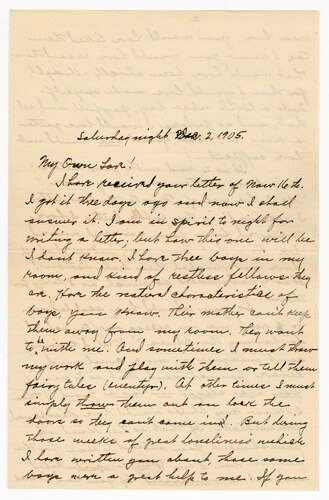 Saturday night Dec. 2, 1905.
My Own Lar!
I har received your letter of Now 16 th.
I got it three days ago and now I shall
answer it. I am in spirit to night for
writing a letter, but how this one will be
I don't know. I har three boys in my
room, and kind of restless fellows they
are. Har the natural characteristics of
boys, you know. Their mother can't keep
them away from my room. They want
to be with me. And sometimes I must throw
my work and play with them or tell them
fairy tales (eventyr). At other times I must
simply throw them out an lock the
doors so they can't come in. But during
those weeks of great loneliness which
I har written you about, those same
boys were a great help to me. If you